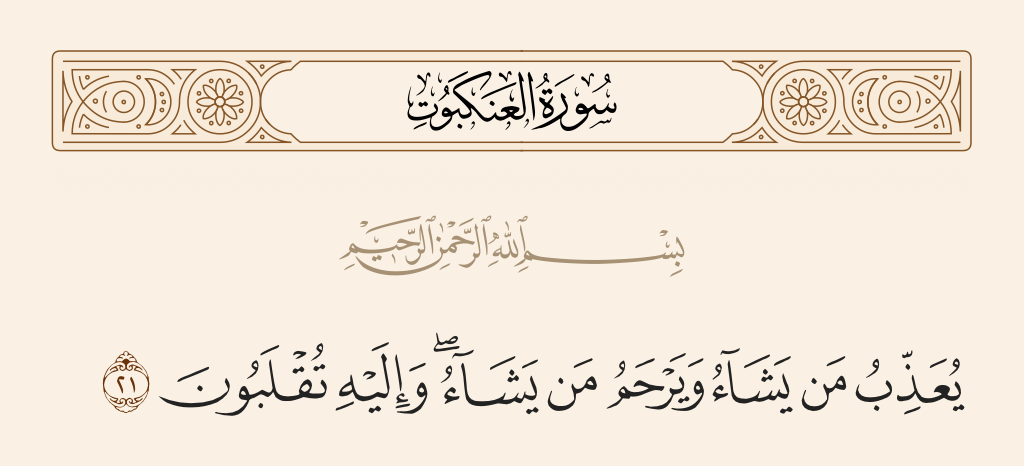 سُورَةُ العَنكَبُوتِ
بِسْمِ ٱللَّهِ ٱلرَّحْمَٰنِ ٱلرَّحِيمِ
يُعَذِّبُ مَن يَشَآءُ وَيَرْحَمُ مَن يَشَآءُ ۖ وَإِلَيْهِ تُقْلَبُونَ ٢١